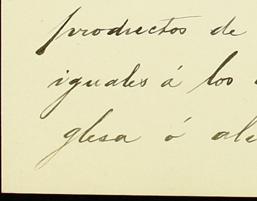 productos de
iguales á los
glesa ó ale